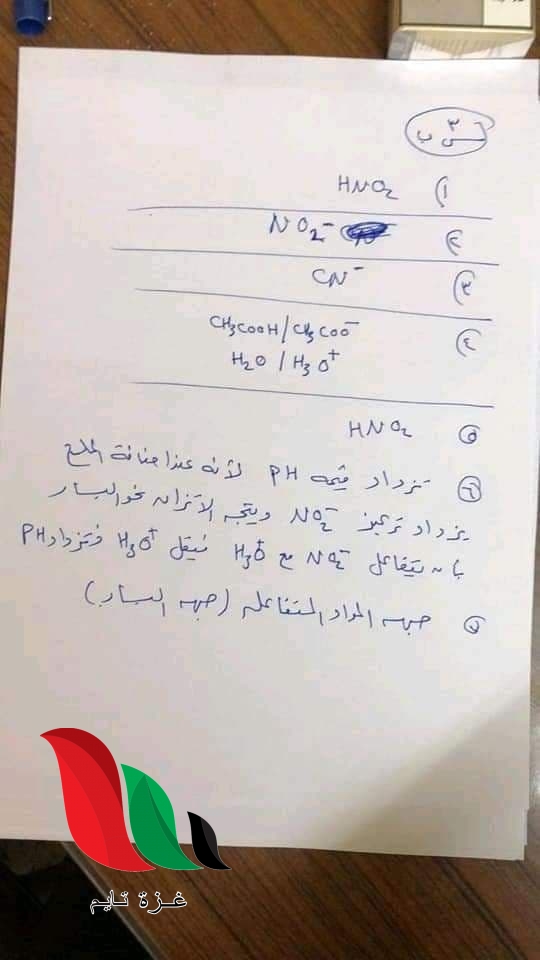 س٣ ب
١) HNO₂
٢) NO₂⁻
٣) CN⁻
٤) CH₃COOH / CH₃COO⁻
H₂O / H₃O⁺
٥) HNO₂
٦) تزداد قيمة PH لأنه عند اضافة الملح
يزداد تركيز NO₂⁻ ويتجه الاتزان نحو اليسار
بأن يتفاعل NO₂⁻ مع H₃O⁺ فيقل H₃O⁺ فتزداد PH
٧) جهه المواد المتفاعله (جهه اليسار)
غزة تايم